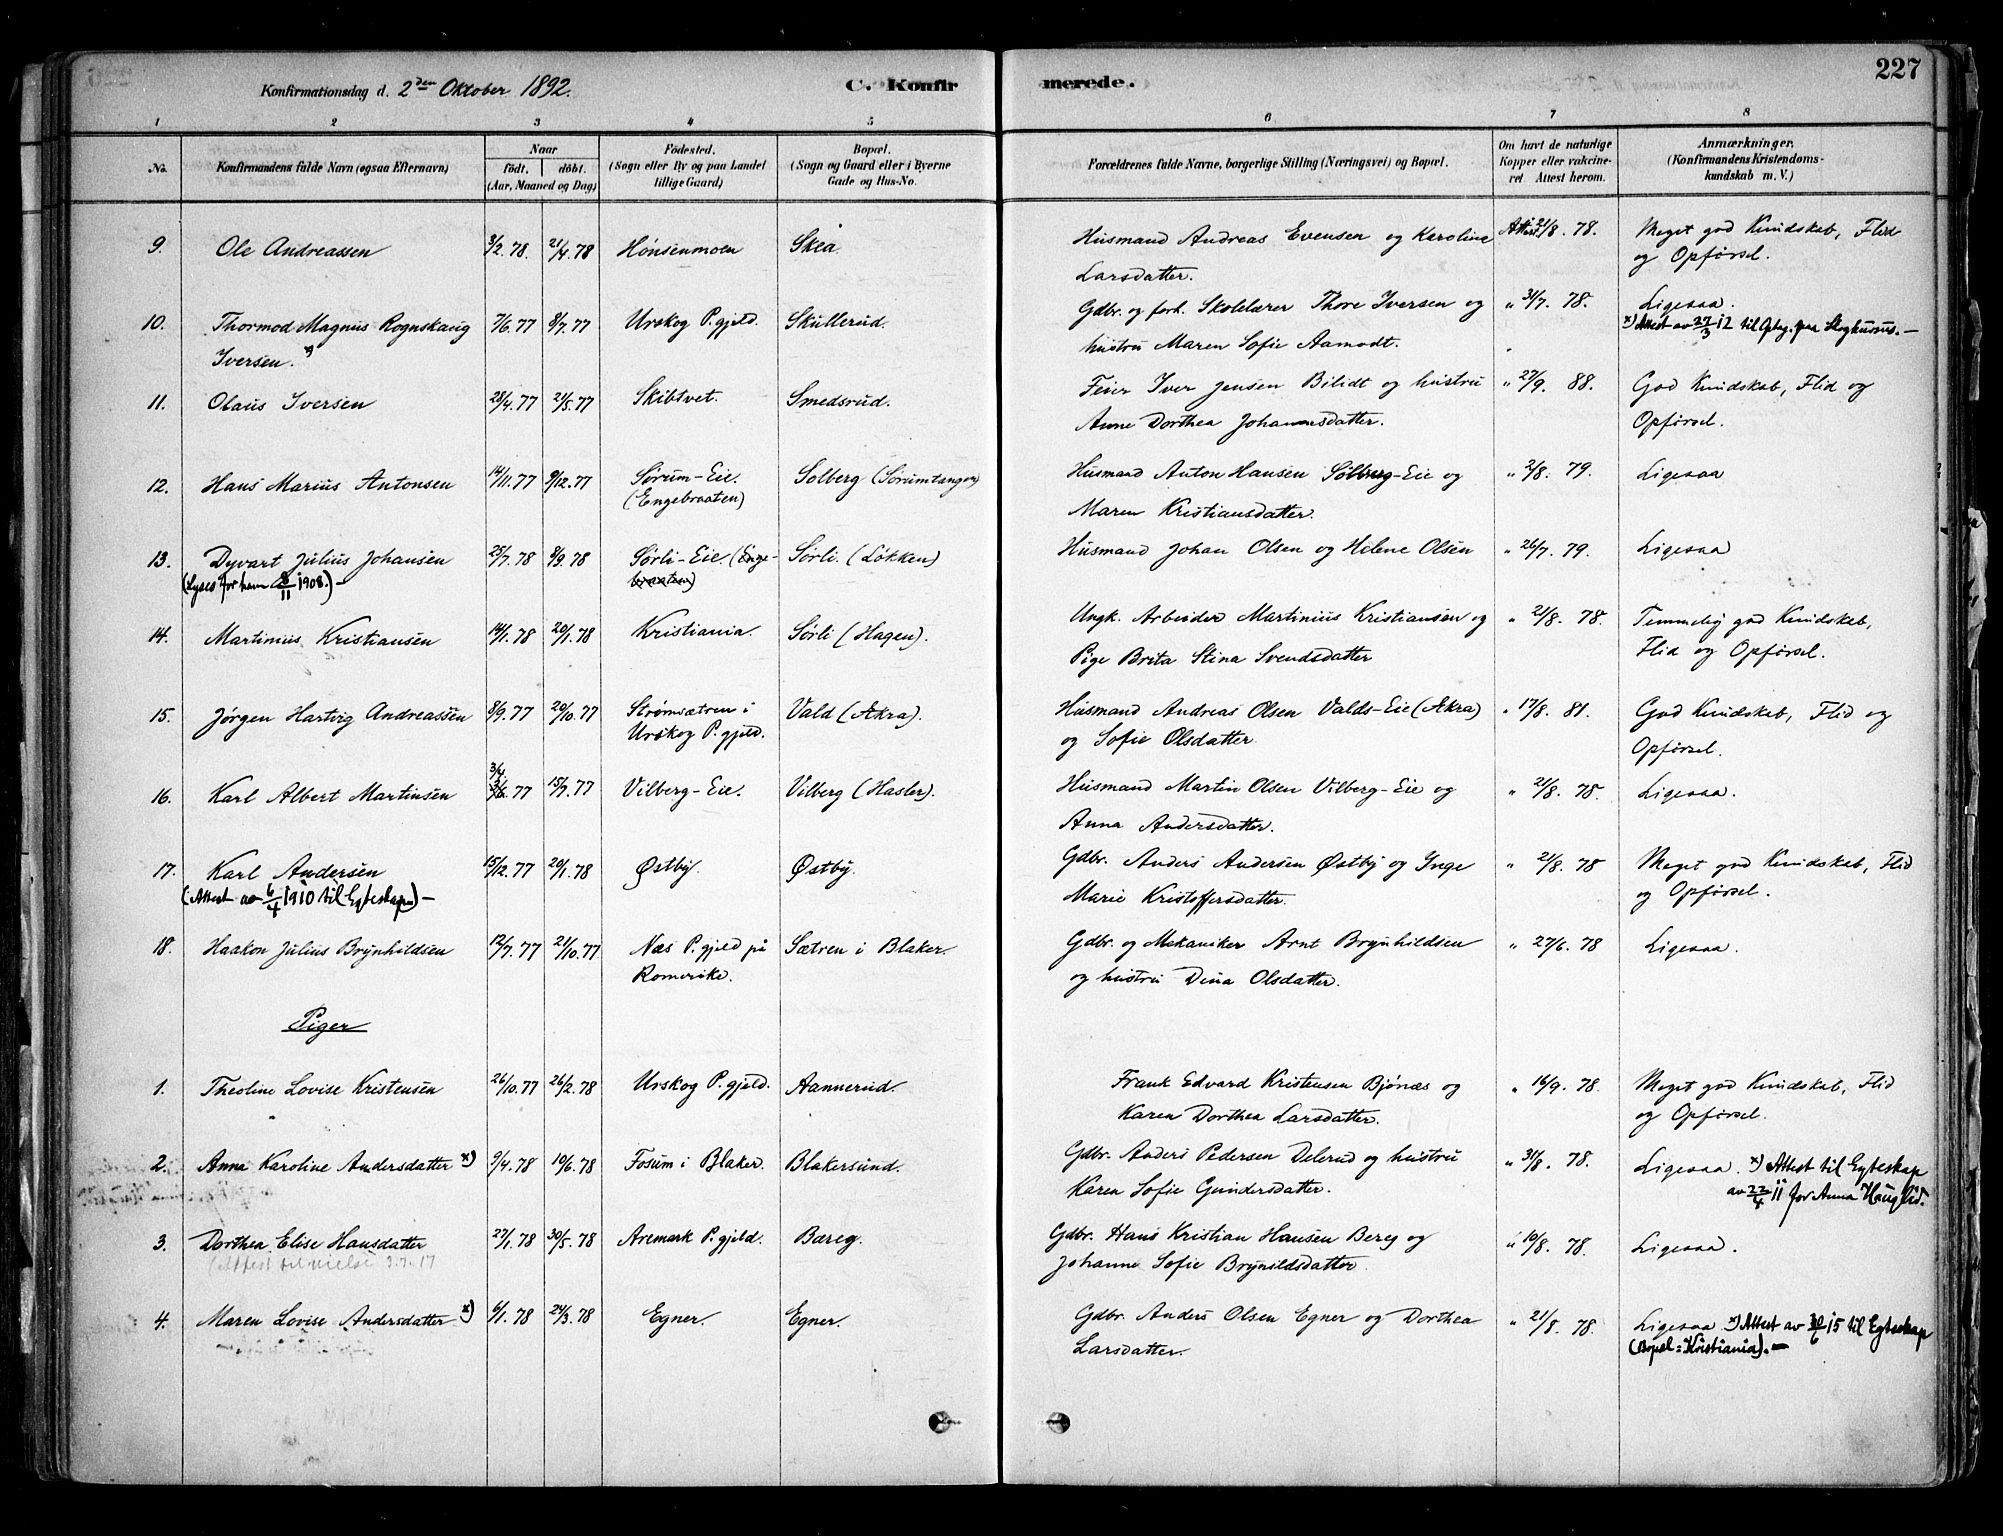 Konfirmationsdag d. 2den Oktober 1892.
C. Konfirmerede.
227
1 2 3 4 5 6 7 8
No.
Konfirmandens fulde Navn (ogsaa Efternavn)
Naar
født. døbt.
(Aar, Maaned og Dag)
Fødested.
(Sogn eller By og paa Landet
tillige Gaard)
Bopæl.
(Sogn og Gaard eller i Byerne
Gade og Hus-No.
Forældrenes fulde Navne, borgerlige Stilling (Næringsvei) og Bopæl.
Om havt de naturlige
Kopper eller vakcine-
ret Attest herom.
Anmærkninger.
(Konfirmandens Kristendoms-
kundskab m. V.)
9. Ole Andreassen 3/2. 78. 21/4. 78 Hønsenmoen Skea Husmand Andreas Evensen og Karoline Attest 21/8. 78. Meget god Kundskab, Flid
Larsdatter. og Opførsel.
10. Thormod Magnus Rognskaug 7/6. 77 8/7. 77 Urskog P.gjeld. Skullerud. Gdbr. og forh. Skolelærer Thore Iversen og " 31/7. 78. Ligesaa.
Iversen. x) hustru Maren Sofie Aamodt. x) Attest av 27/3 12 til Optag. paa Skogkursus.-
11. Olaus Iversen 28/4. 77 21/5. 77 Skibtvet. Smedsrud. Feier Iver Jensen Bilidt og hustru " 27/9. 88. God Kundskab, Flid og
Anne Dorthea Johannesdatter. Opførsel.
12. Hans Marius Antonsen 14/11. 77 9/12. 77 Sørum-Eie. Solberg (Sørumtangen) Husmand Anton Hansen Solberg-Eie og " 2/8. 79. Ligesaa
(Engebraaten) Maren Kristiansdatter.
13. Dyvart Julius Johansen 25/7. 78 8/9. 78 Sørli-Eie. (Enge- Sørli. (Løkken) Husmand Johan Olsen og Helene Olsen " 26/7. 79. Ligesaa
(Lyses for ham 8/11 1908.)- braaten)
14. Martinius Kristiansen 14/1. 78 20/1. 78 Kristiania. Sørli (Hagen). Ungk. Arbeider Martinius Kristiansen og " 21/8. 78. Temmelig god Kundskab,
Pige Brita Stina Svendsdatter Flid og Opførsel.
15. Jørgen Hartvig Andreassen 8/9. 77 20/10. 77 Strømsætren i Vald (Akra). Husmand Andreas Olsen Valds-Eie (Akra) " 17/8. 81. God Kundskab, Flid og
Urskog P.gjeld. og Sofie Olsdatter. Opførsel.
16. Karl Albert Martinsen 3/4. 77 15/7. 77 Vilberg-Eie. Vilberg (Hasler). Husmand Martin Olsen Vilberg-Eie og " 21/8. 78. Ligesaa.
Anna Andersdatter.
17. Karl Andersen 15/12. 77 20/1. 78 Østby. Østby. Gdbr. Anders Andersen Østby og Inge " 21/8. 78 Meget god Kundskab, Flid
(Attest av 6/4 1910 til Egteskap)- Marie Kristoffersdatter. og Opførsel.
18. Haakon Julius Brynhildsen 12/7. 77 21/10. 77 Næs P.gjeld på Sætren i Blaker. Gdbr. og Mekaniker Arnt Brynhildsen " 27/6. 78 Ligesaa.
Romerike. og hustru Dina Olsdatter.
Piger
1. Theoline Lovise Kristensen 26/10. 77 26/2. 78 Urskog P.gjeld. Aannerud. Frank Edvard Kristensen Bjønæs og " 16/9. 78. Meget god Kundskab, Flid
Karen Dorthea Larsdatter. og Opførsel.
2. Anna Karoline Andersdatter x) 9/4. 78 10/6. 78 Fosum i Blaker. Blakersund. Gdbr. Anders Pedersen Delerud og hustru " 31/8. 78. Ligesaa. x) Attest til Egteskap
Karen Sofie Gundersdatter. av 22/4 11 for Anna "Hauglid".
3. Dorthea Elise Hansdatter 27/1. 78 30/5. 78 Aremark P.gjeld. Bæreg. Gdbr. Hans Kristian Hansen Bereg og " 10/8. 78. Ligesaa.
(Attest til vielse 3.7.17 Johanne Sofie Brynildsdatter.
4. Maren Lovise Andersdatter x) 6/1. 78 24/3. 78 Egner. Egner. Gdbr. Anders Olsen Egner og Dorthea " 21/8. 78. Ligesaa x) Attest av 30/6 15 til Egteskap
Larsdatter. (Bopæl: Kristiania).-